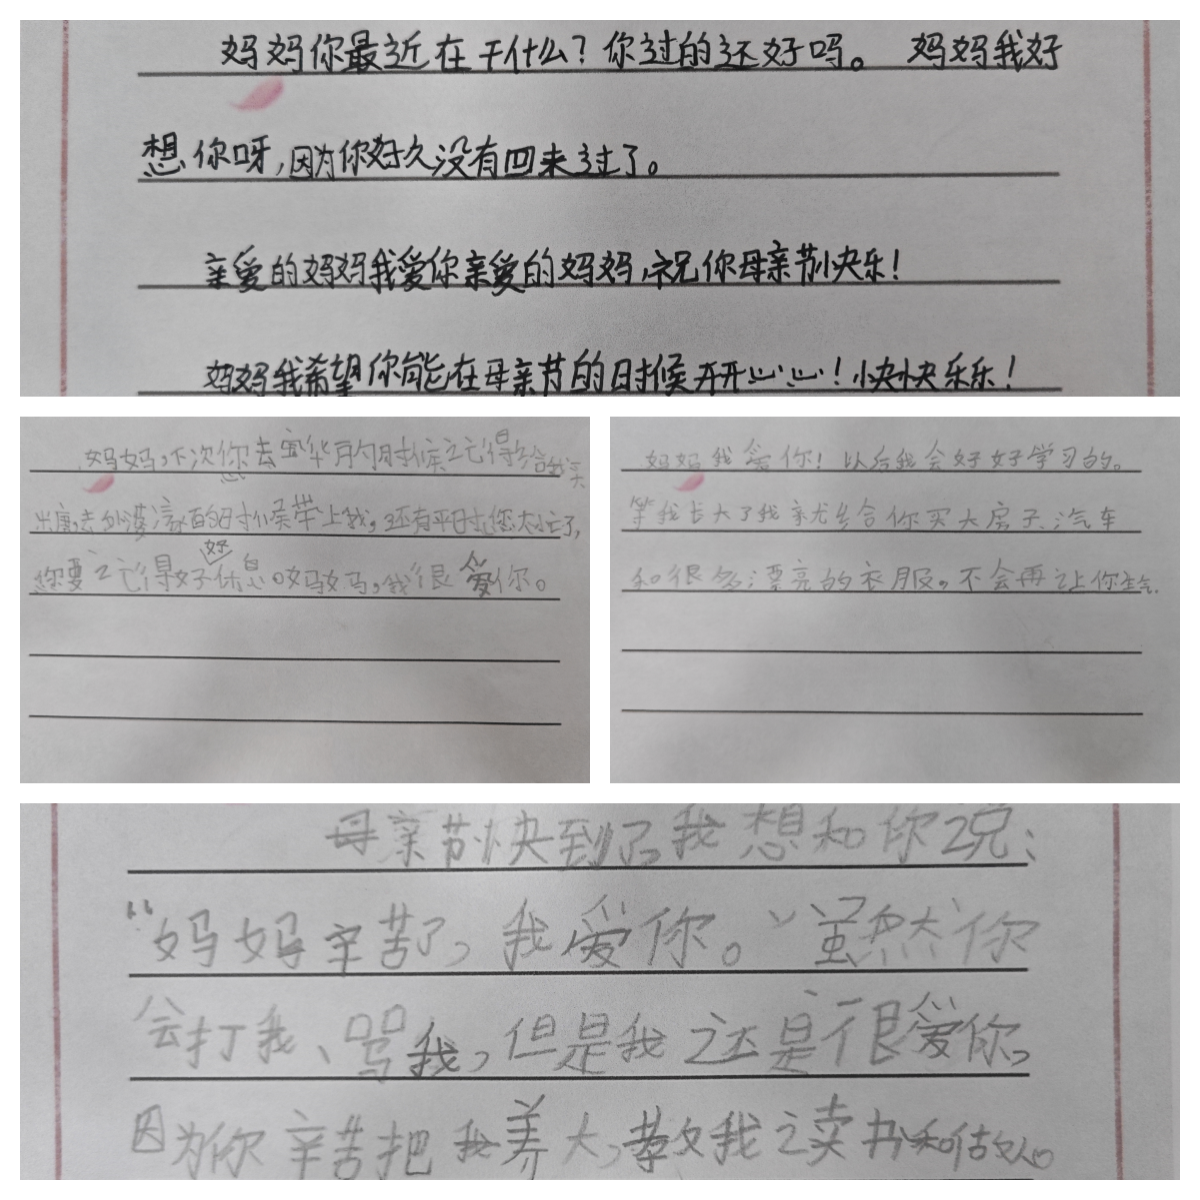 妈妈你最近在干什么?你过的还好吗。 妈妈我好
想你呀,因为你好久没有回来过了。
亲爱的妈妈我爱你亲爱的妈妈,祝你母亲节快乐!
妈妈我希望你能在母亲节的时候开开心心!快快乐乐!
妈妈,下次您去 的时候记得给我买
的时候带上我,还有平时您太忙了,
您要记得好好休息。妈妈,我很爱你。
妈妈我爱你!以后我会好好学习的。
等我长大了我就给你买大房子、汽车
和很多漂亮的衣服。不会再让你生气.
母亲节快到了,我想和你说:
“妈妈辛苦了,我爱你。”虽然你
会打我、骂我,但是我还是很爱你,
因为你辛苦把我养大,教我读书和做人。